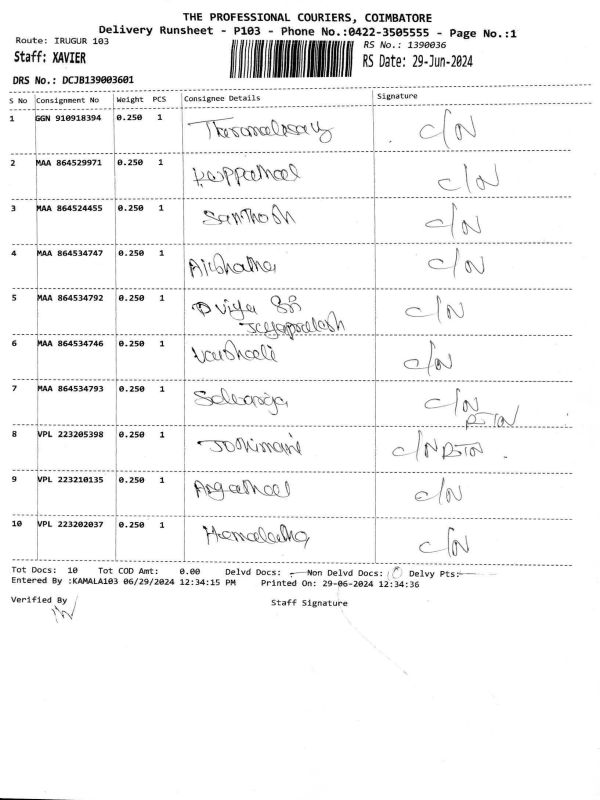 THE PROFESSIONAL COURIERS, COIMBATORE
Delivery Runsheet - P103 - Phone No.:0422-3505555 - Page No.:1
Route: IRUGUR 103
RS No.: 1390036
Staff: XAVIER
RS Date: 29-Jun-2024
DRS No.: DCJB139003601
S No Consignment No Weight PCS Consignee Details Signature
1 GGN 910918394 0.250 1 C/N
2 MAA 864529971 0.250 1 C/N
3 MAA 864524455 0.250 1 Santhosh C/N
4 MAA 864534747 0.250 1 C/N
5 MAA 864534792 0.250 1 C/N
6 MAA 864534746 0.250 1 Vaishali C/N
7 MAA 864534793 0.250 1 C/N
RTN
8 VPL 223205398 0.250 1 C/N RTN
9 VPL 223210135 0.250 1 C/N
10 VPL 223202037 0.250 1 Hemalatha C/N
Tot Docs: 10 Tot COD Amt: 0.00 Delvd Docs: Non Delvd Docs: 10 Delvy Pts:
Entered By :KAMALA103 06/29/2024 12:34:15 PM Printed On: 29-06-2024 12:34:36
Verified By
Staff Signature